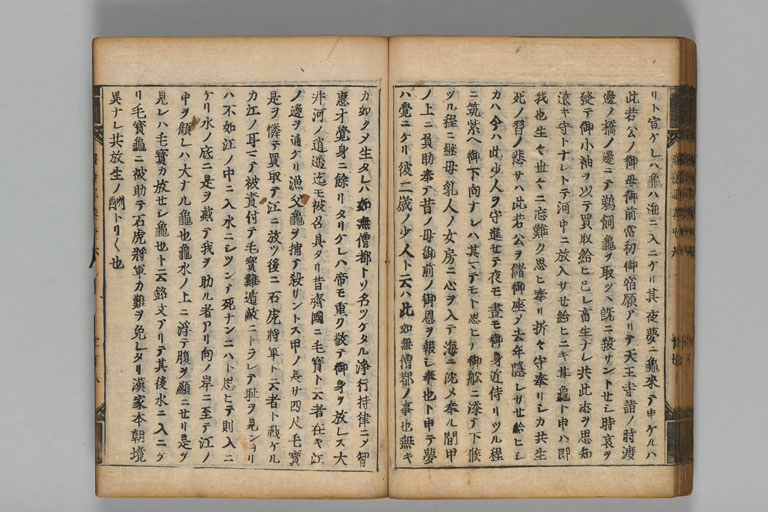 リト宣ケレハ龜ハ海ニ入ニケリ其夜夢ニ龜來テ申ケルハ
此若公ノ御母御前當初御宿願アリテ天王寺詣ノ時渡
邊ノ橋ノ邊ニテ鵜飼龜ヲ取ツヽ既ニ殺サントセシ時哀ヲ
發テ御小袖ヲ以テ買取給ヒ已レ畜生ナレ共此志ヲ思知
遠キ守トナレトテ河中ニ放入サセ給ヒニキ其龜ト申ハ即
我也生々世々ニ忘難ク思ヒ奉リ折々守奉リシカ共生
死ノ習ノ悲サハ此若公ヲ儲御座メ去年隱レサセ給ヒシ
カハ今ハ此少人ヲ守進セテ夜モ晝モ御身近侍リツル程
ニ筑紫ヘ御下向ナレハ其マテモト思ヒテ御舩ニ添テ下候
ツル程ニ継母乳人ノ女房ニ心ヲ入テ海ニ沈メ奉ル間甲
ノ上ニ負助奉テ昔ノ母御前ノ御恩ヲ報シ奉也ト申テ夢
ハ覺ニケリ彼二歳ノ少人ト云ハ此如無僧都ノ事也無キ
カ如クメ生タレハ如無僧都トソ名ツケタル淨行持律ニメ智
惠才覺身ニ餘リタリケレハ帝モ重ク敬テ御身ヲ放レス大
井河ノ逍遙迄モ被召具タリ昔齊國ニ毛寶ト云者在キ江
ノ邊ヲ通ケリ漁父龜ヲ捕テ殺リントス甲ノ長サ四尺毛寶
是ヲ憐テ買取テ江ニ放ツ後ニ石虎將軍ト云者ト戰ケル
カ江ノ耳マテ被責付テ毛寶難遁敵ニトラレテ耻ヲ見ンヨリ
ハ不如江ノ中ニ入水ニシツンテ死ナンニハト思ヒテ則入ニ
ケリ水ノ底ニ是ヲ戴テ我ヲ助ル者アリ向ノ岸ニ至テ江ノ
中ヲ顧レハ大ナル龜也龜水ノ上ニ浮テ腹ヲ顯ニセリ是ヲ
見レハ毛寶カ放セシ龜也ト云銘文アリテ其後水ニ入ニケ
リ毛寶龜ニ被助テ石虎將軍カ難ヲ免レタリ漢家本朝境
異ナレ共放生ノ酬トリ〱也